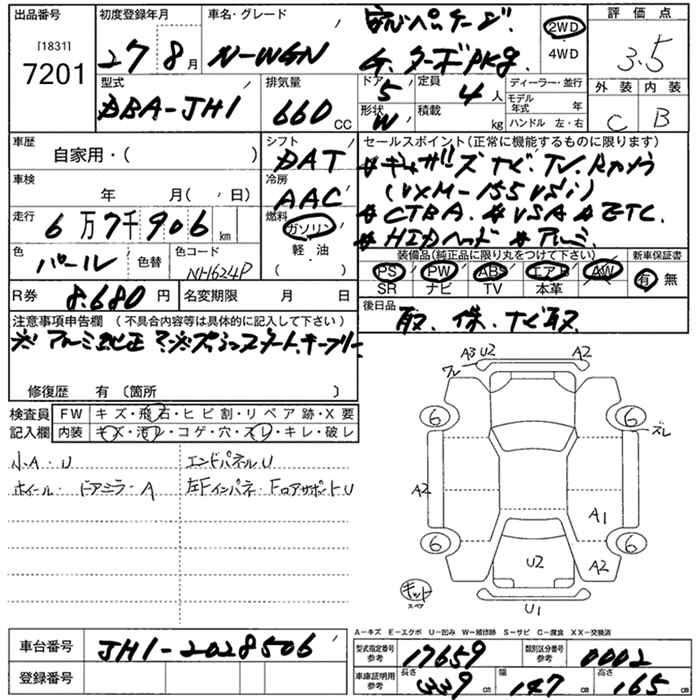 出品番号 初度登録年月 車名・グレード 評価点
[1831]
7201
27 8月 N-WGN
安心パッケージ
G.ターボPKg.
2WD
4WD
3.5
型式 排気量 ドア 定員 ディーラー・並行 外装 内装
DBA-JH1 660 CC 5 4人 モデル年式 年
形状 積載 ハンドル 左・右
W kg C B
車歴 シフト セールスポイント(正常に機能するものに限ります)
自家用・( ) DAT
#ギャザーズナビ.TV.Rカメラ
車検 冷房
年 月( 日) AAC
(VXM-155VSi)
走行 燃料
6万7千906km ガソリン
#CTBA. #VSA #ETC.
軽・油
( )
#HIDヘッド #アルミ
色 色替 色コード
パール NH624P
装備品(純正品に限り丸をつけて下さい) 新車保証書
PS PW ABS エアB AW
SR ナビ TV 本革
有 無
R券 8.680円 名変期限 月 日
後日品
取.保.ナビ取
注意事項申告欄 (不具合内容等は具体的に記入して下さい)
修復歴 有 〔箇所 〕
検査員 FW キズ・飛石・ヒビ割・リペア跡・X要
記入欄 内装 キズ・汚レ・コゲ・穴・スレ・キレ・破レ
小A・U エンドパネルU
ホイール・ドアミラーA 左Fインパネ・FロアサポートU
ワレ A3 U2 A2
6 6
ズレ
A2 A1
6 6
U2 A2
キット
スペア
U1
A-キズ E-エクボ U-凹み W-補修跡 S-サビ C-腐食 XX-交換済
車台番号 JH1-2028506
登録番号
型式指定番号 参考 17659 類別区分番号 参考 0002
車庫証明用 参考 長さ 339cm 幅 147cm 高さ 165cm